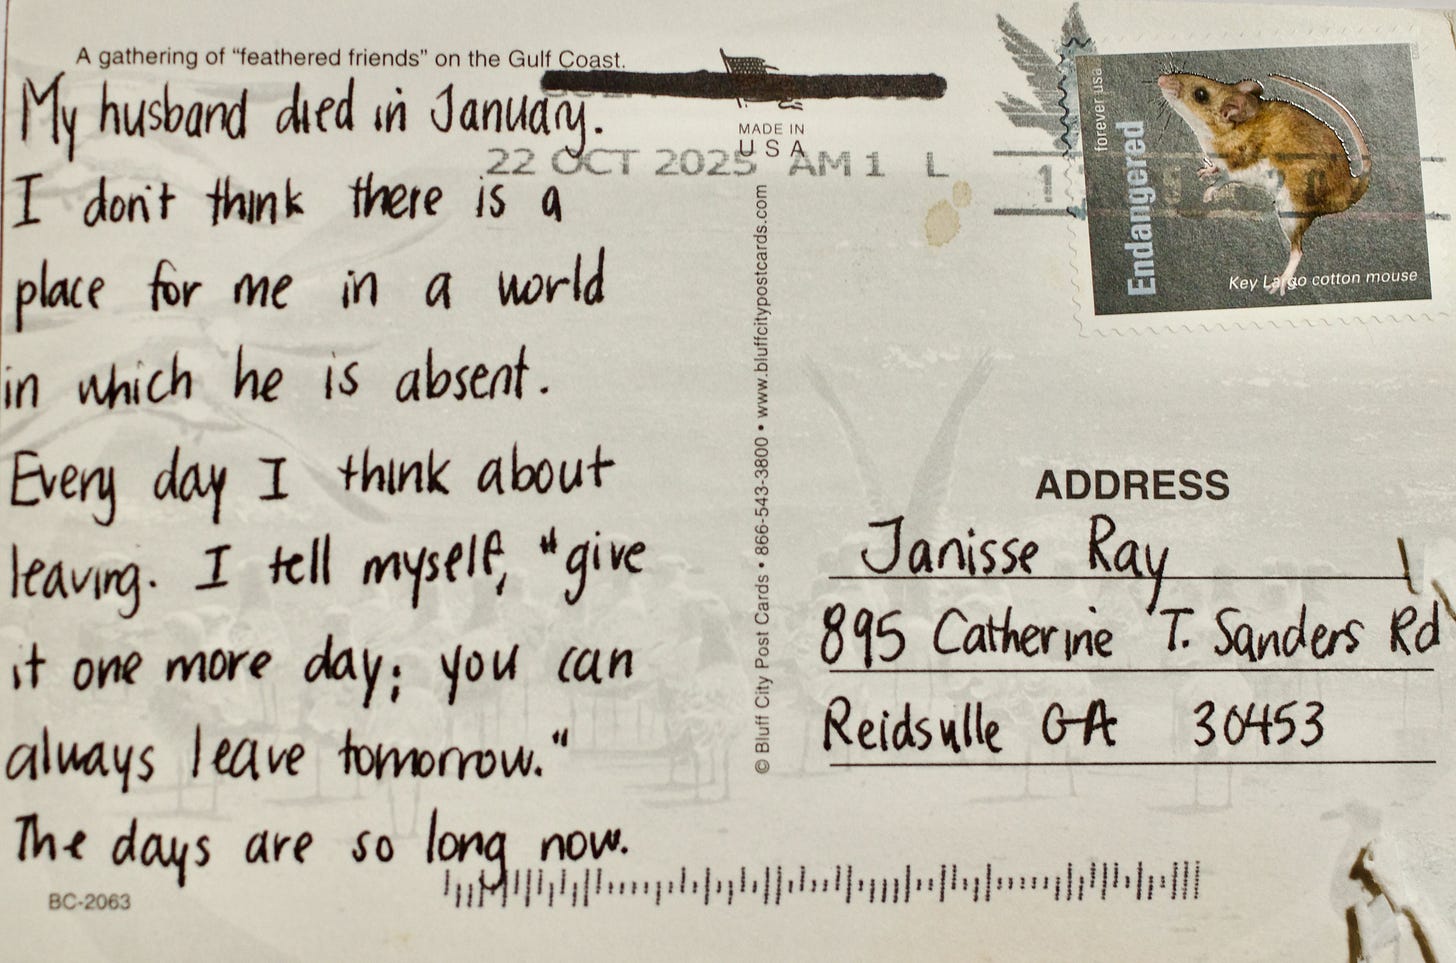 A gathering of "feathered friends" on the Gulf Coast.
My husband died in January.
I don't think there is a
place for me in a world
in which he is absent.
Every day I think about
leaving. I tell myself, "give
it one more day; you can
always leave tomorrow."
The days are so long now.
BC-2063
MADE IN
USA
22 OCT 2025 AM 1 L
© Bluff City Post Cards • 866-543-3800 • www.bluffcitypostcards.com
forever usa
Endangered
Key Largo cotton mouse
ADDRESS
Janisse Ray
895 Catherine T. Sanders Rd
Reidsville GA 30453